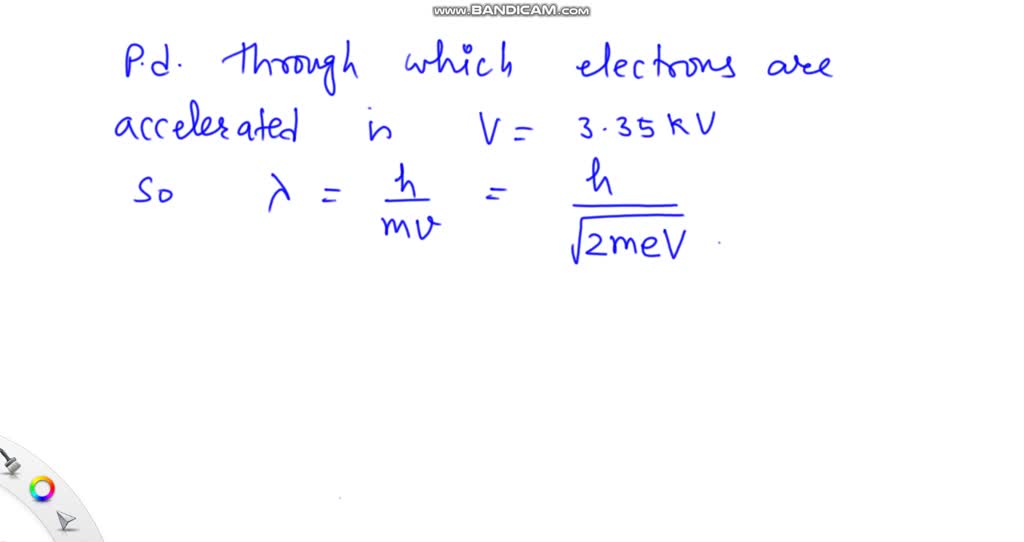 www.BANDICAM.com
P.d. through which electrons are
accelerated is V = 3.35 kV
So λ = h/mv = h/√2meV